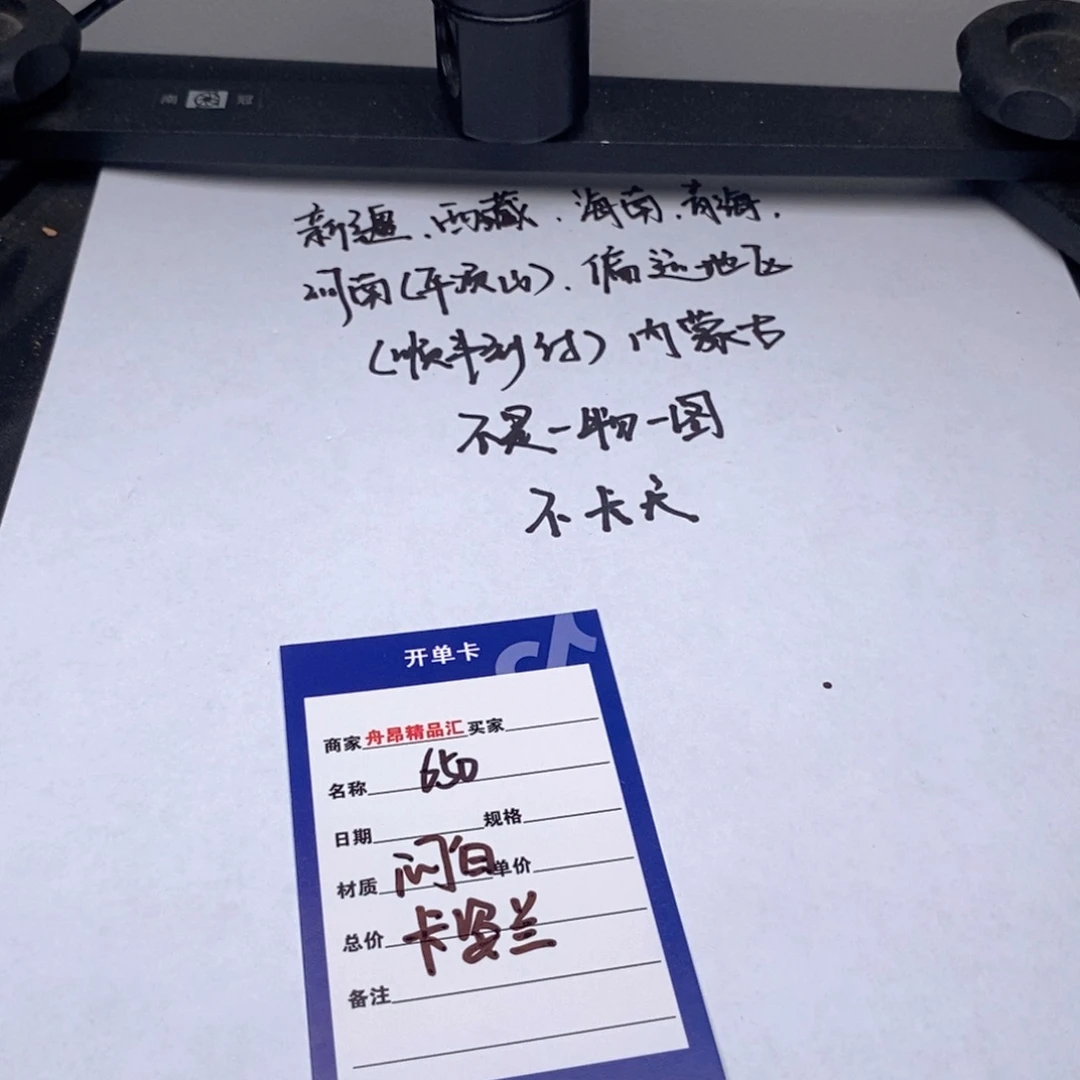 南冠
新疆、西藏、海南、青海、
河南(平顶山)、偏远地区
(顺丰到付)内蒙古
不是一物一图
不卡天
开单卡
商家 舟昂精品汇 买家
名称 650
日期 规格
材质 闪白 单价
总价 卡姿兰
备注